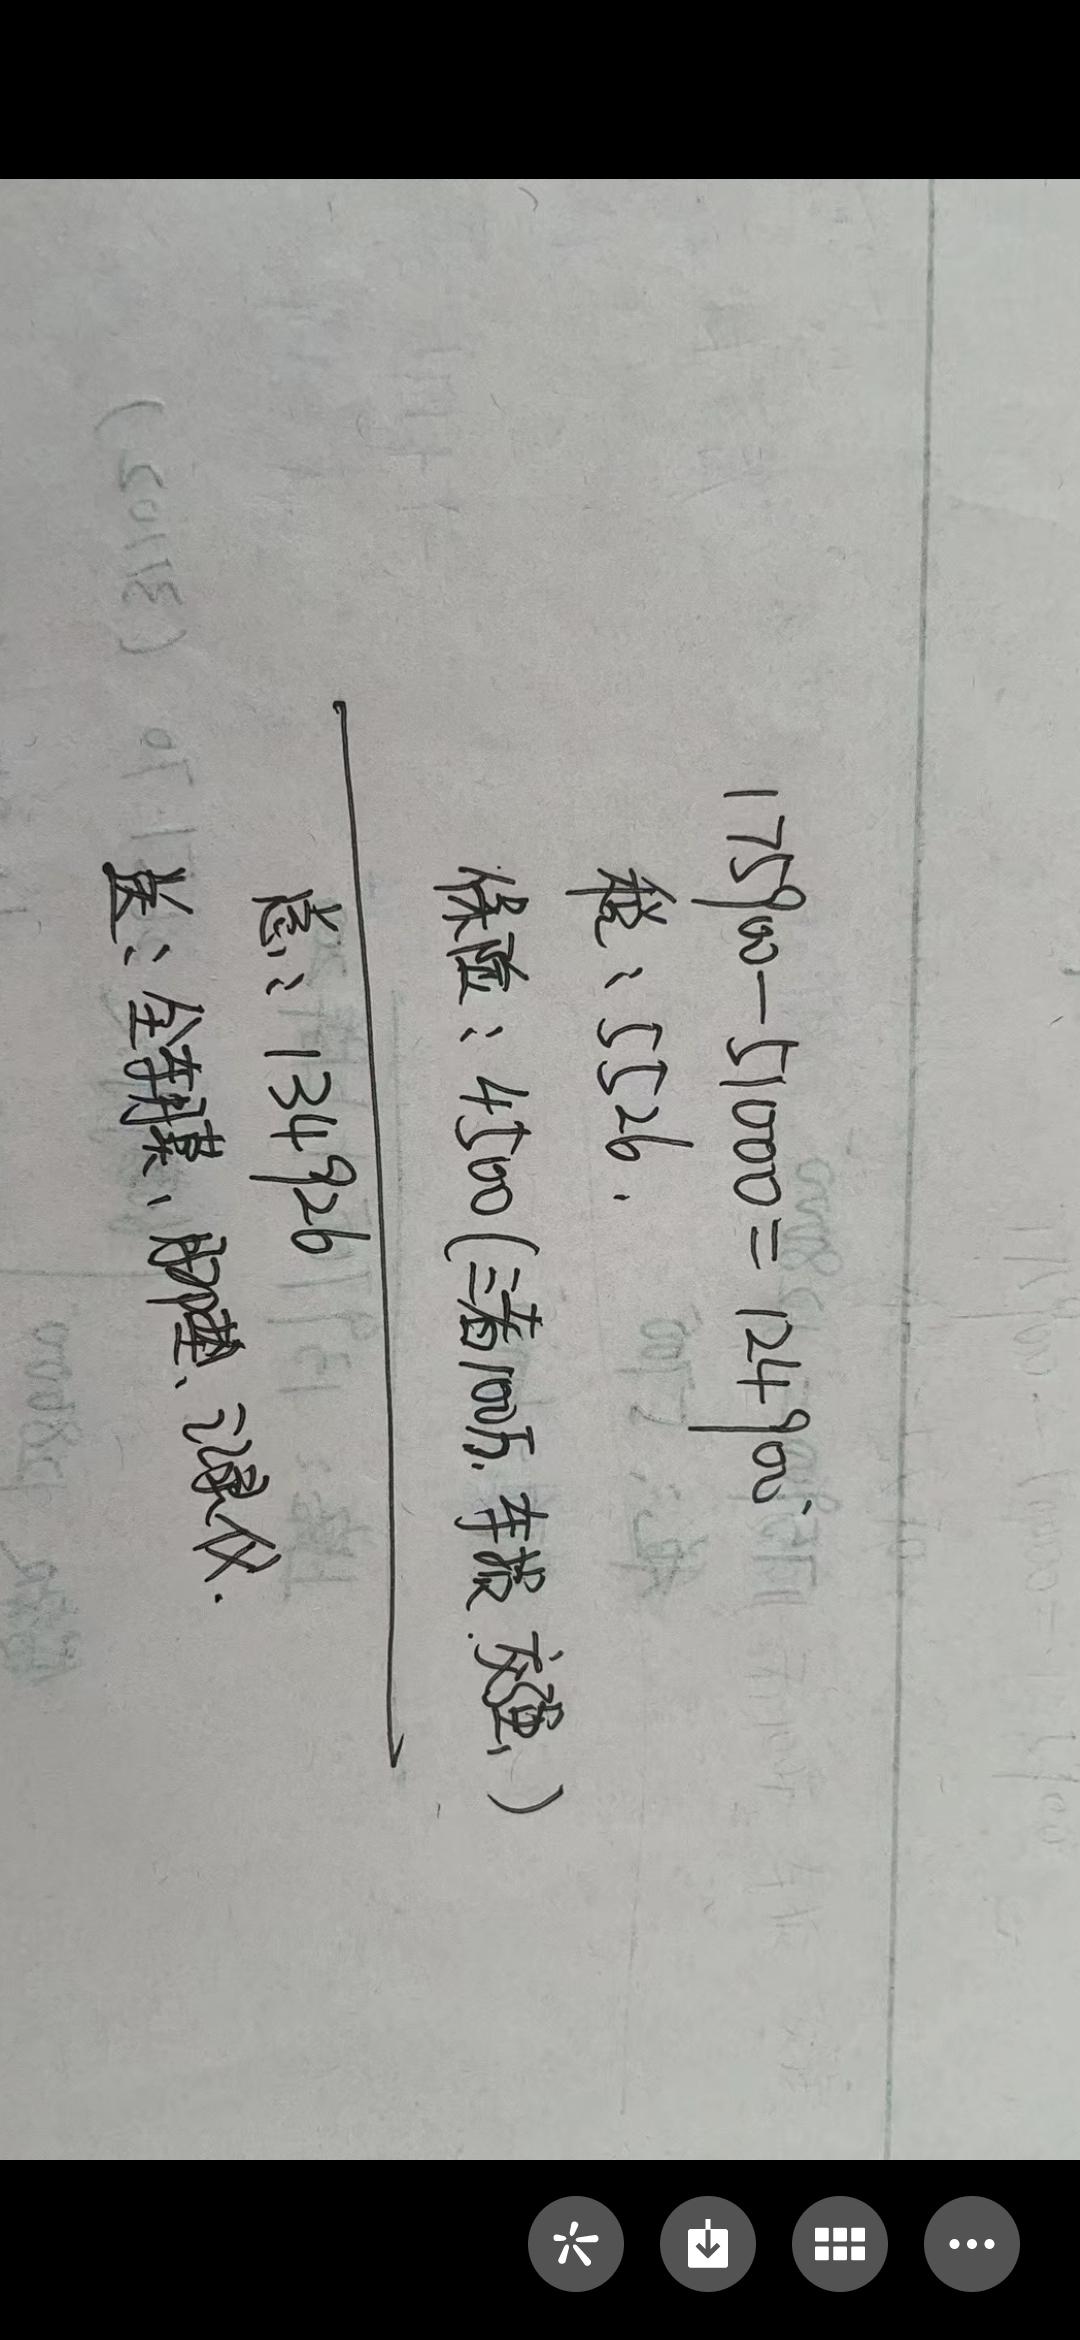 175900-51000=124900.
税：5526.
保险：4500(三者100万.车损.交强、)
总：134926
送：全车膜、脚垫、记录仪.